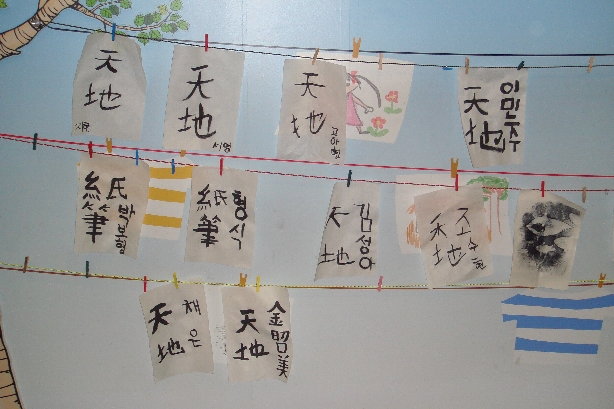 天地
天地
시영
天地
고아현
天地
이민주
紙筆
박보람
紙筆
형식
天地
김성아
天地
天地
채은
天地
金昭美